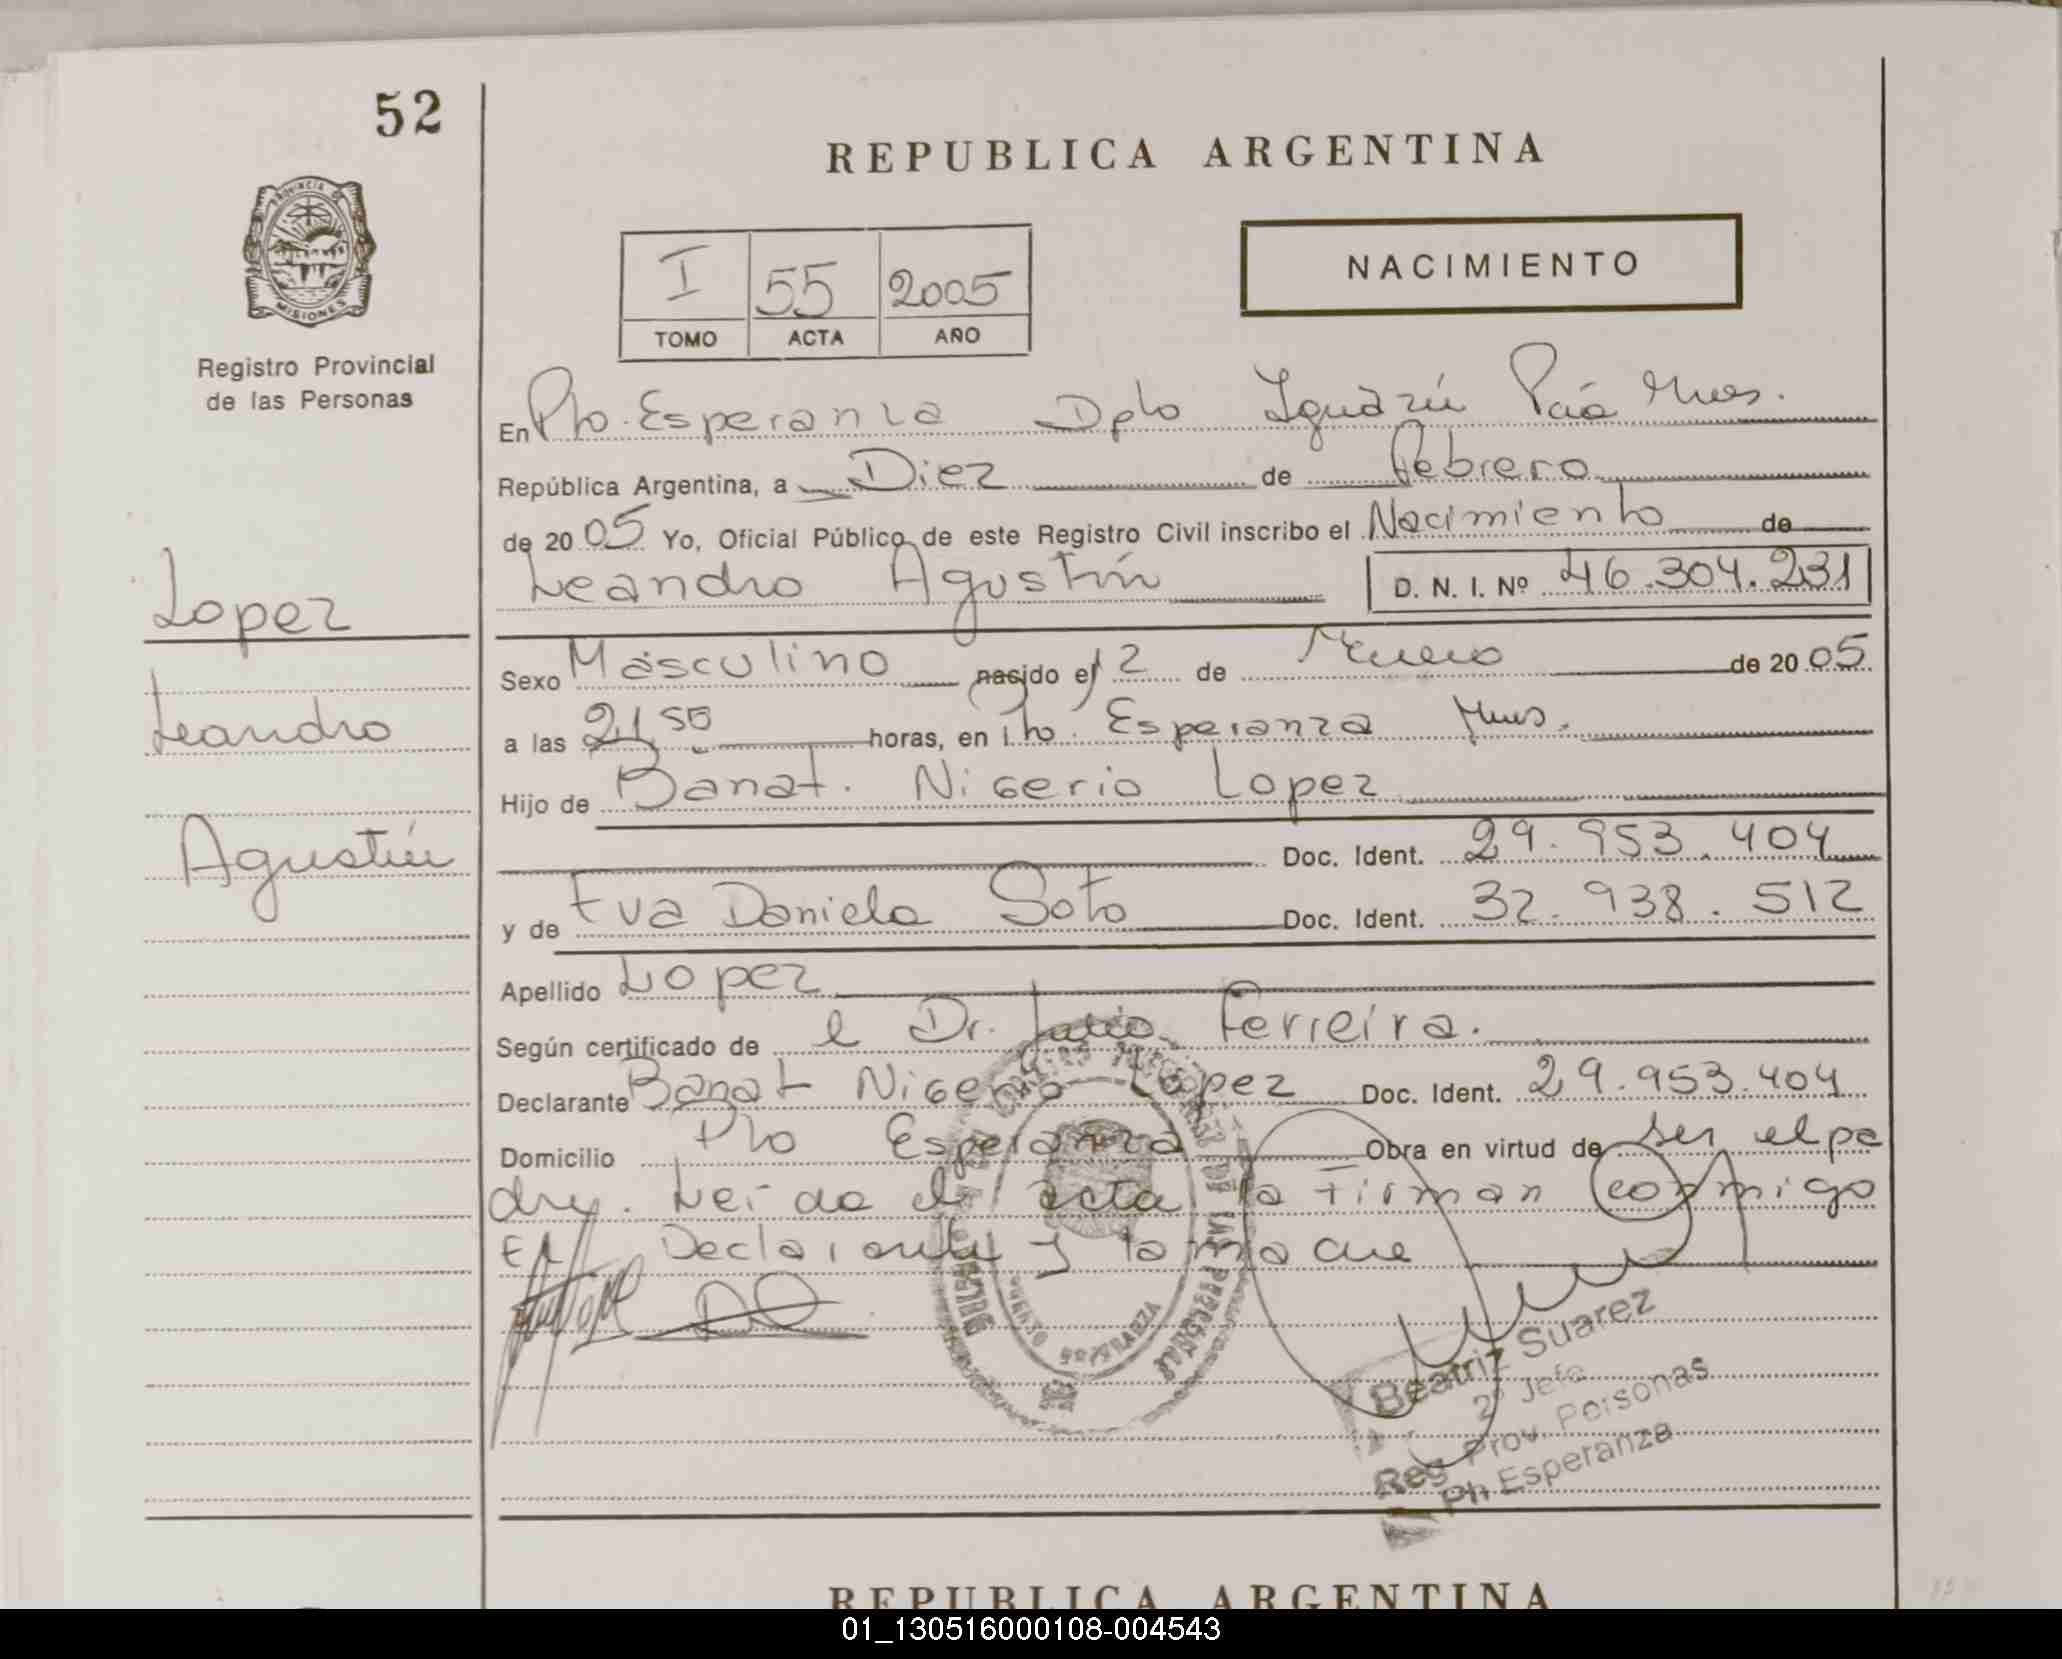 52
REPUBLICA ARGENTINA
PROVINCIA DE
MISIONES
Registro Provincial
de las Personas
I 55 2005
TOMO ACTA AÑO
NACIMIENTO
En Pto. Esperanza Dpto Iguazú Pcia Mnes.
República Argentina, a Diez de Febrero
de 2005 Yo, Oficial Público de este Registro Civil inscribo el Nacimiento de
Leandro Agustín D. N. I. Nº 46.304.231
Lopez
Leandro
Agustín
Sexo Masculino nacido el 12 de Enero de 2005
a las 21,50 horas, en Pto. Esperanza Mnes.
Hijo de Banat. Nicerio Lopez
Doc. Ident. 29.953.404
y de Eva Daniela Soto Doc. Ident. 32.938.512
Apellido Lopez
Según certificado de el Dr. Julio Ferreira.
Declarante Banat Nicerio Lopez Doc. Ident. 29.953.404
Domicilio Pto Esperanza Obra en virtud de ser el pa
dre. Leida el acta la Firman conmigo
El Declarante y la madre
PUERTO ESPERANZA
Beatriz Suarez
2º Jefe
Reg Prov. Personas
Pto Esperanza
REPUBLICA ARGENTINA
01_130516000108-004543